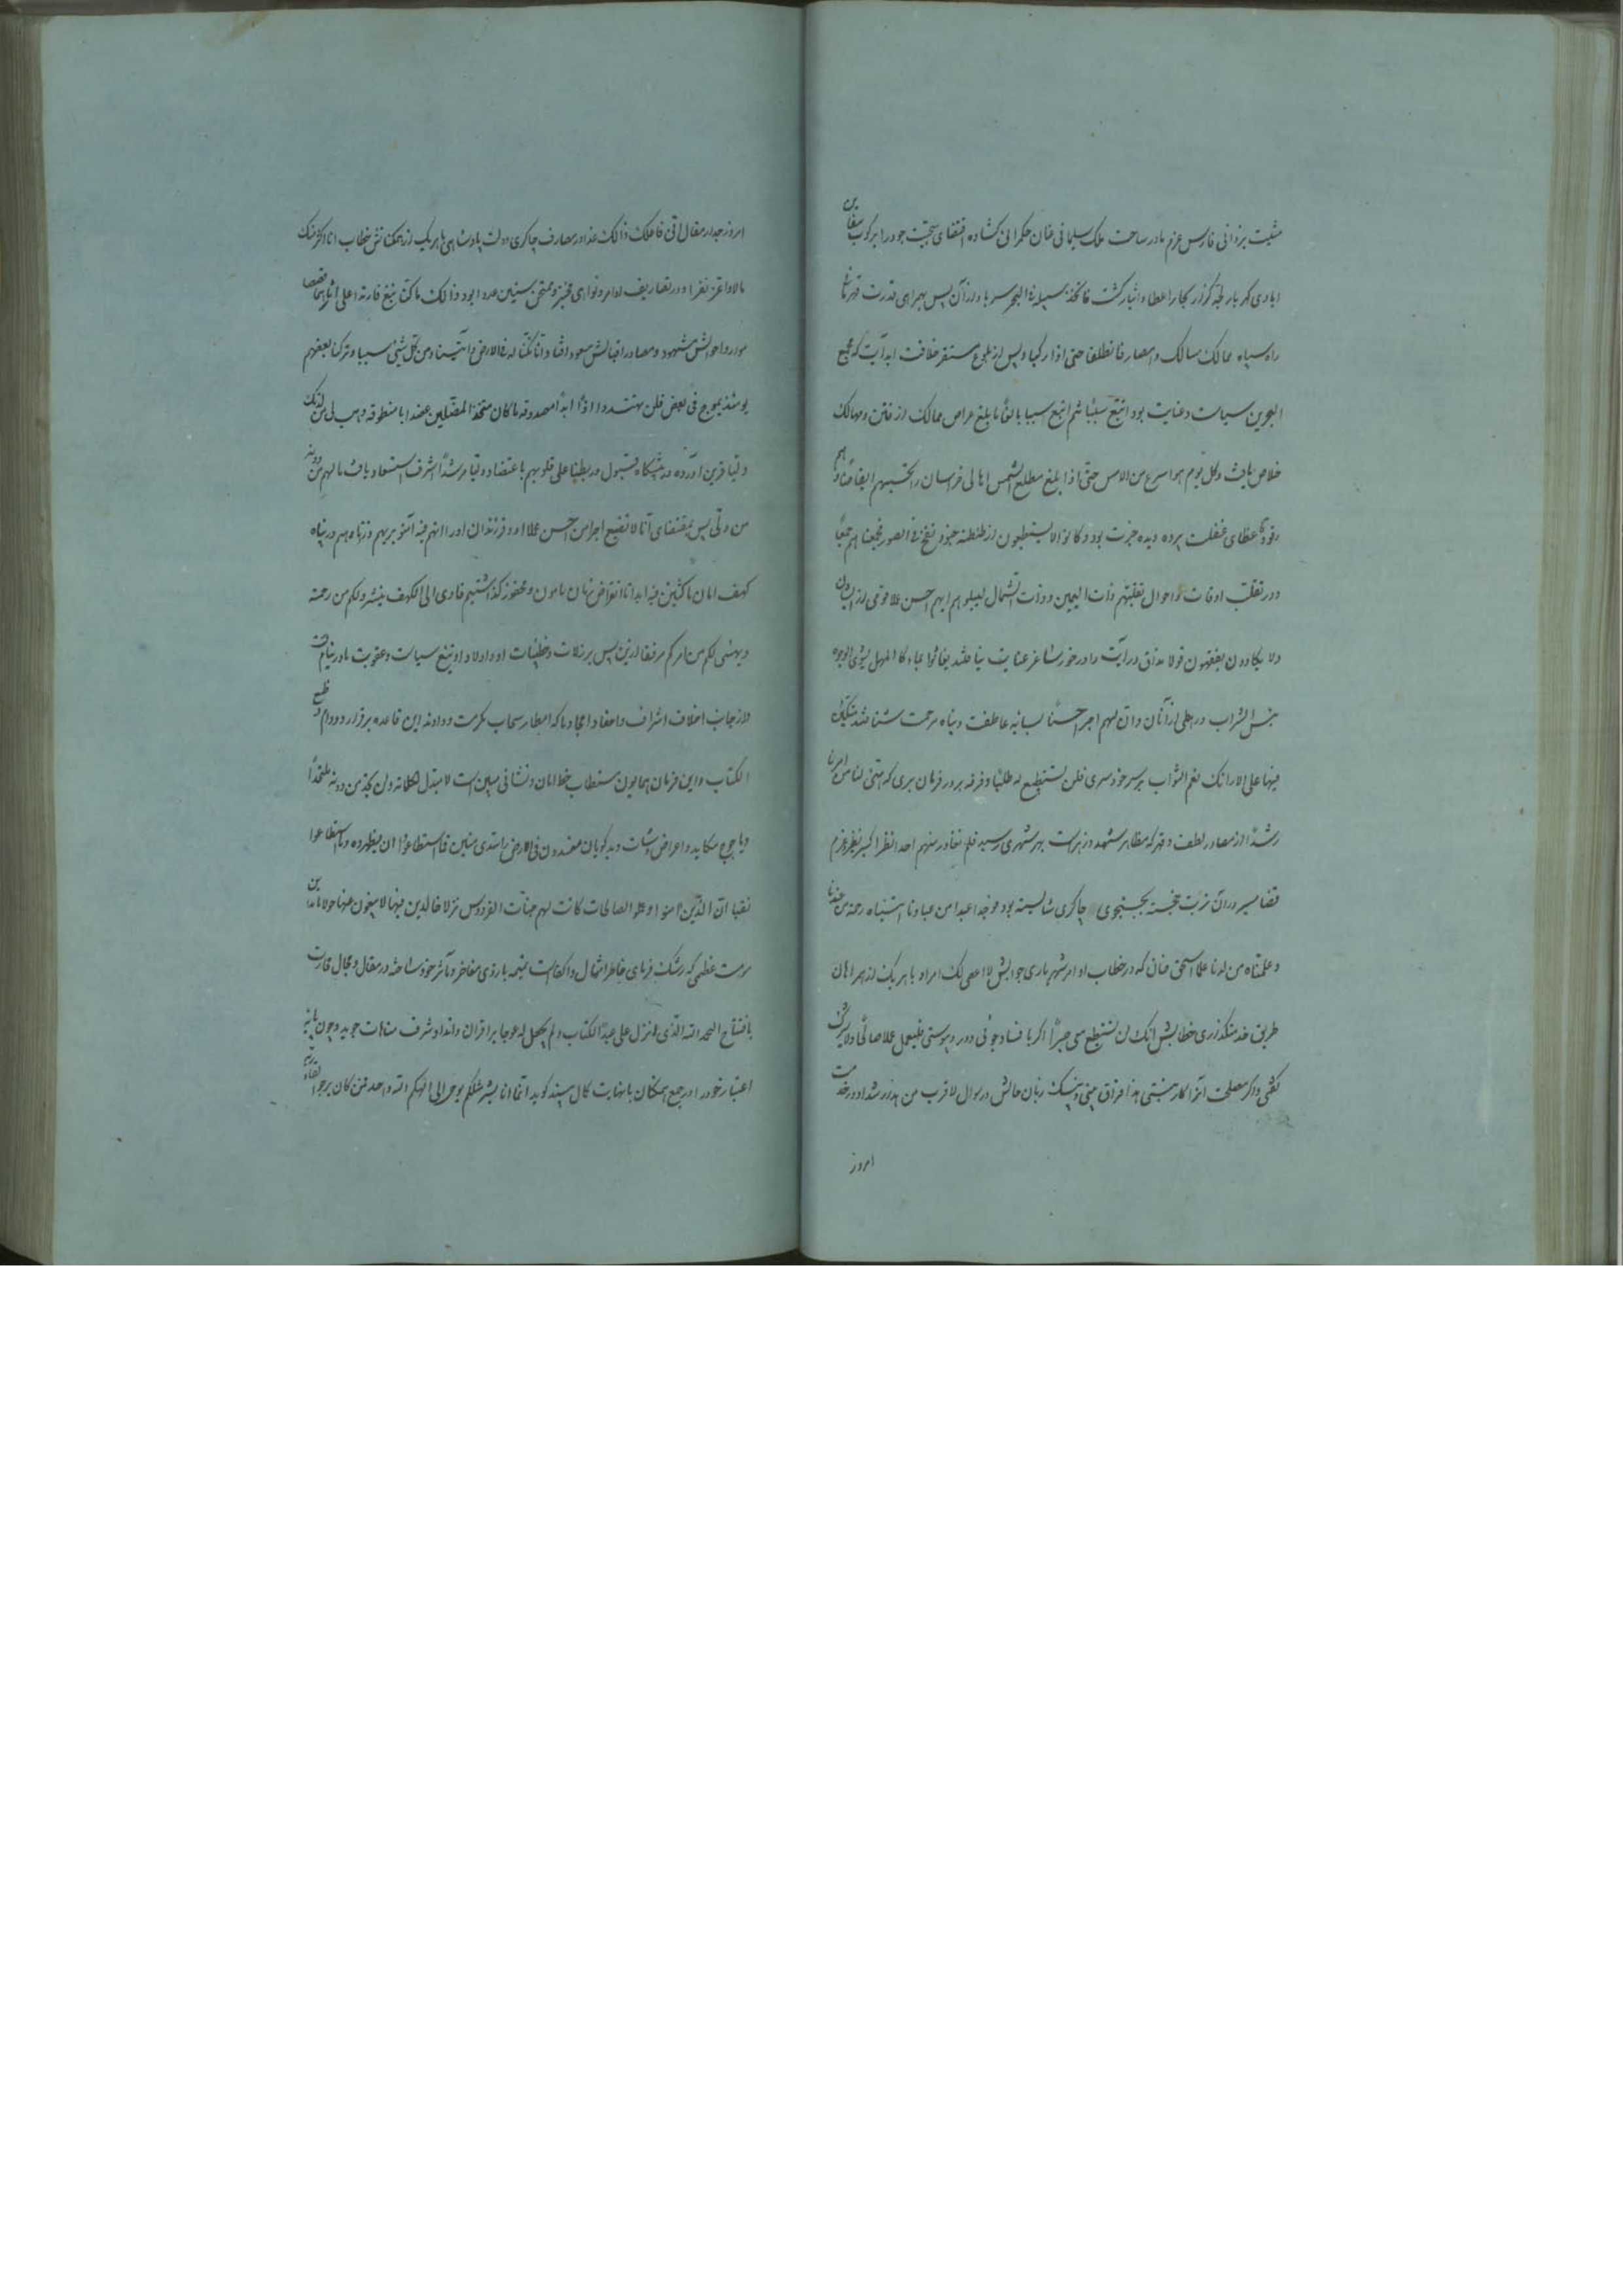 مشیت یزدانی فارس عزم مادر ساحت ملک سلیمانی عنان حکمرانی کشاده اقتفای سجیت جود را برکوب سفاین
ایادی کهر بار لجه کزار بحار عطا و ایثار کشت فاتخذ سبیله فی البحر سربا و از آن پس بهمراهی قدرت قهرمانی
راه سپاه ممالک مسالک و امصار فانطلقا حتی اذا رکبا و پس از بلوغ مستقر خلافت ابد آیت که مجمع
البحرین سیاست و عنایت بود اتبع سببا ثم اتبع سببا بالغا ما بلغ عراص ممالک از فتن و مهالک
خلاص یافت و کل یوم هو اسرع من الامس حتی اذا بلغ مطلع الشمس اهالی خراسان را تحسبهم ایقاظا و هم
رقود غطای غفلت پرده دیده حیرت بود و کانوا لا یستطیعون از طنطنه جنود نفخ فی الصور فجمعناهم جمعا
و در تقلب اوقات و احوال نقلبهم ذات الیمین و ذات الشمال لیبلوهم ایهم احسن عملا قومی از ایشان
ولا یکادون یفقهون قولا مذاق درایت را در خور ساغر عنایت نیامدند یغاثوا بماء کالمهل یشوی الوجوه
بئس الشراب و رهطی از آنان و ان لهم اجرا حسنا بسایه عاطفت و پناه مرحمت شتافتند متکئین
فیها علی الارائک نعم الثواب بر سر خودسری فلن تستطیع له طلبا و فرقه بر در فرمان بری که هیئ لنا من امرنا
رشدا از مصادر لطف و قهر که مظاهر شهد و زهر است بهر شهری رسید فلم نغادر منهم احدا نظر اکسیر نظیر عزم
قضا مسیر در آن تربت خجسته بجستجوی چاکری شایسته بود فوجدا عبدا من عبادنا آتیناه رحمة من عندنا
و علمناه من لدنا علما اسحق خان که در خطاب اوامر شهریاری جوابش لا اعصی لک امرا و با هر یک از همراهان
طریق خدمتکذاری خطابش انک لن تستطیع معی صبرا اگر با فساد جوئی دور و پوستی فلیعمل عملا صالحا ولا یشرک
کفتی و اگر مصلحت را کار بستی هذا فراق بینی و بینک زبان حالش در سوال لاقرب من هذا رشدا و در خدمت
امروز
امروز جدار مقال انی فاعل ذالک غدا در مصارف چاکری دولت پادشاهی با هر یک از همکنانش خطاب انا اکثر منک
مالا و اعز نفرا و در تصاریف اوامر و نواهی مخبر و ممتحن سنین عددا بود ذالک ما کنا نبغ فارتدا علی آثارهما قصصا
موارد احوالش مشهود و مصادر اقبالش مسعود افتاد انا مکنا له فی الارض و آتیناه من کل شیئ سببا و ترکنا بعضهم
یومئذ یموج فی بعض فلن یهتدوا اذا ابدا مصدوقه ما کان متخذ المضلین عضدا با منطوقه و هب لی من لدنک
ولیا قرین آورده در پیشکاه قبول و ربطنا علی قلوبهم باعتضاد ولیا مرشدا شرف استسعاد یافت ما لهم من دونه
من ولی پس بمقتضای انا لا نضیع اجر من احسن عملا او و فرزندان او را انهم فتیة آمنوا بربهم و زدناهم در پناه
کهف امان ماکثین فیه ابدا تا انقراض زمان مامون و محفوظ کذاشتیم فاوی الی الکهف ینشر لکم من رحمته
و یهیئ لکم من امرکم مرفقا از این پس بر زلات و خطیئات او و اولاد او تیغ سیاست و عقوبت ما در نیام است
و از جانب اخلاف اشراف و احفاد امجاد ما که امطار سحاب مکرمت و دادند این قاعده برقرار و دوام وضع
الکتاب و این فرمان همایون مستطاب خط امان و نشانی مبین است لا مبدل لکلماته و لن یجد من دونه ملتحدا
و یاجوج مکاید و اعراض وشات و بدکویان مفسدون فی الارض را سدی متین فما استطاعوا ان یظهروه و ما استطاعوا
نقبا ان الذین آمنوا و عملوا الصالحات کانت لهم جنات الفردوس نزلا خالدین فیها لا یبغون عنها حولا با این
مرحمت عظمی که رشک فرمای خاطر امثال و اکفاست تمیمه بازوی مفاخر و مآثر خود ساخته در مقال و مجال قارت
بافتتاح الحمد لله الذی انزل علی عبده الکتاب و لم یجعل له عوجا بر اقران و انداد شرف مباهات جوید و چون پایه
اعتبار خود را در جمع همکنان بانهایت کمال بیند کوید انما انا بشر مثلکم یوحی الی انما الهکم اله واحد فمن کان یرجوا لقاء ربه